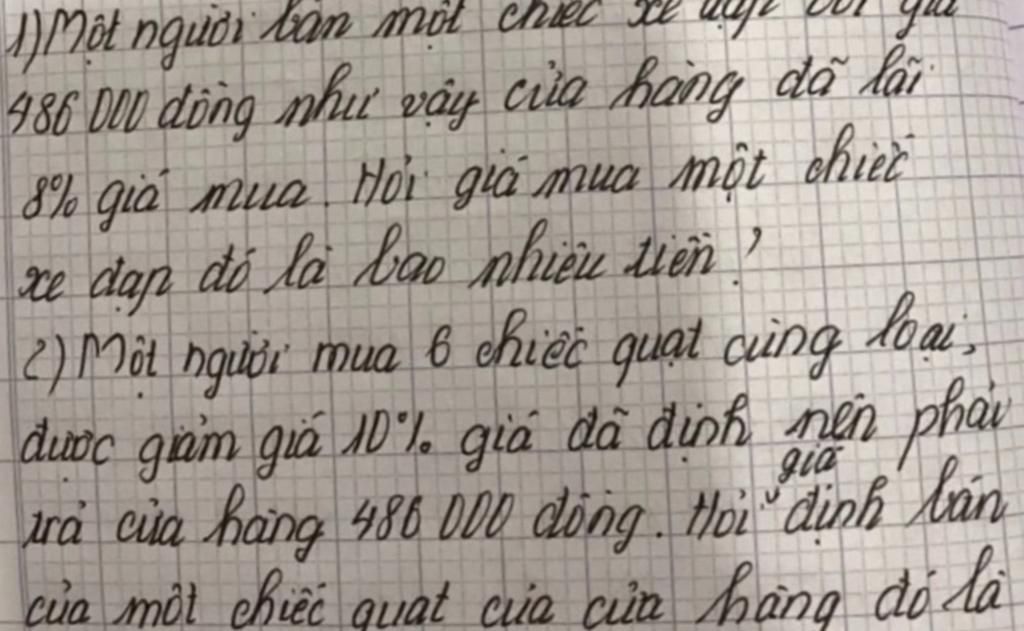 1) Một người bán một chiếc xe đạp với giá
486 000 đồng như vậy cửa hàng đã lãi
8% giá mua. Hỏi giá mua một chiếc
xe đạp đó là bao nhiêu tiền?
2) Một người mua 6 chiếc quạt cùng loại,
được giảm giá 10% giá đã định nên phải
trả cửa hàng 486 000 đồng. Hỏi giá định bán
của một chiếc quạt của cửa hàng đó là